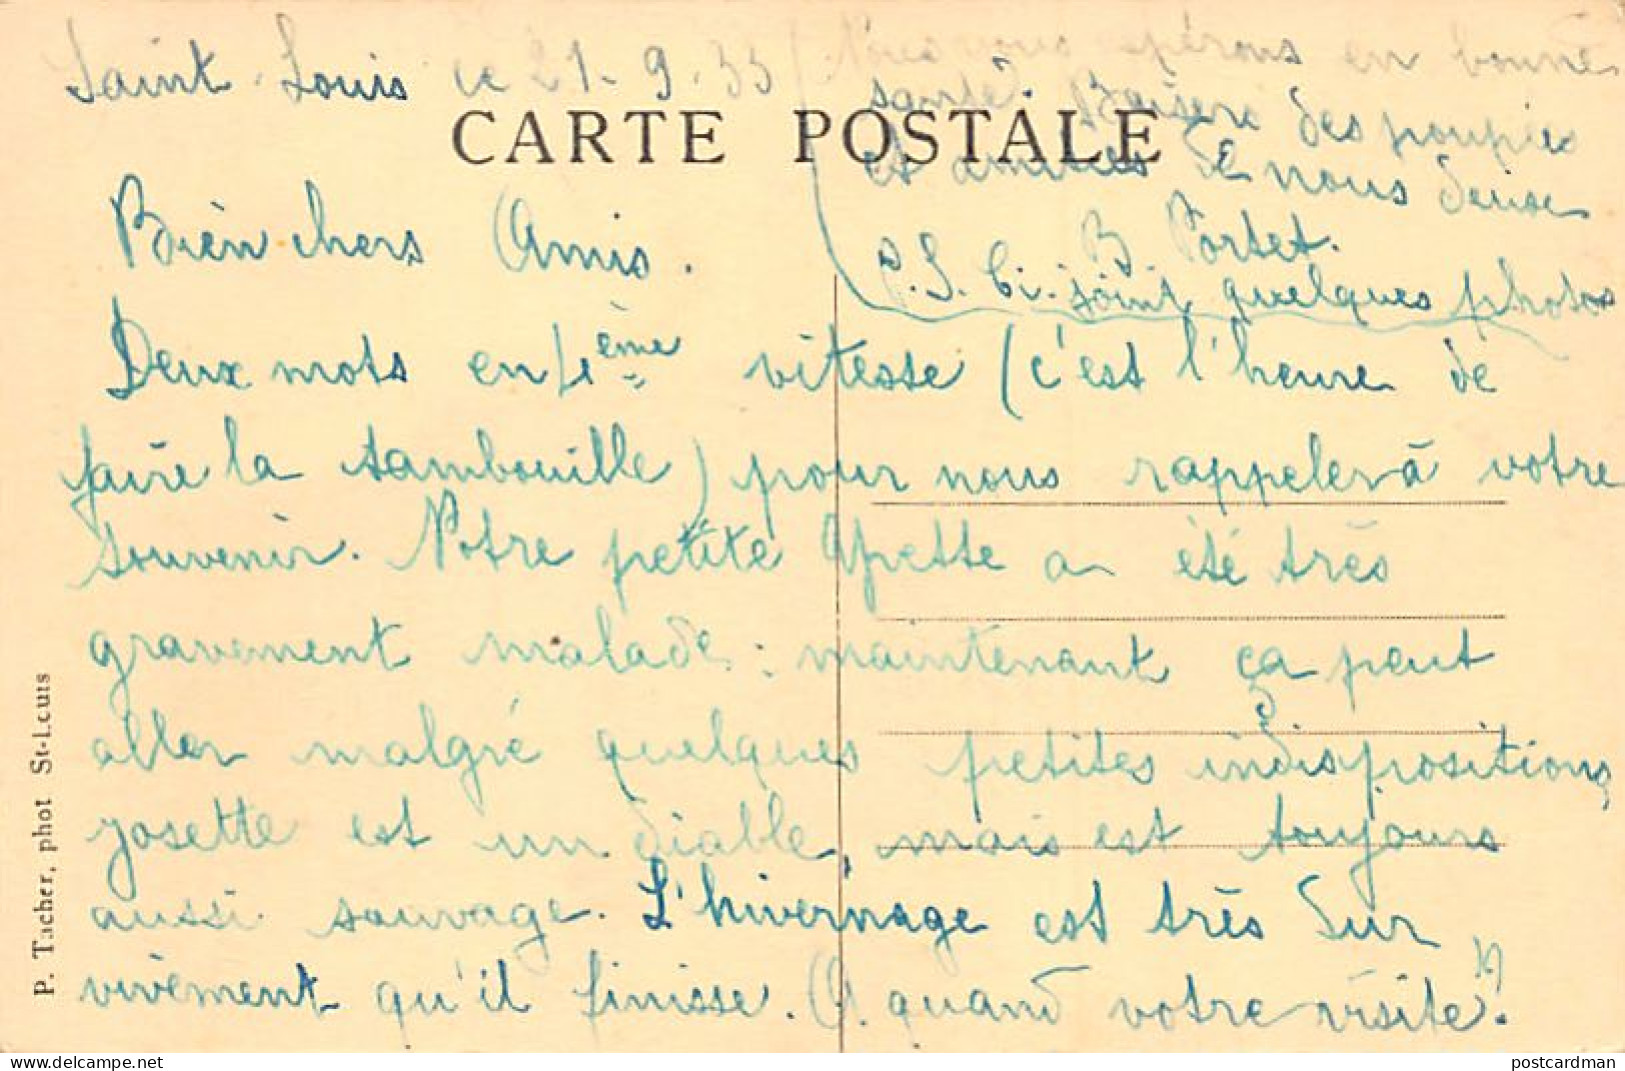 Saint-Louis le 21-9-35
CARTE POSTALE
Bien chers Amis.
Deux mots en 4ème vitesse (c'est l'heure de
faire la tambouille) pour nous rappeler à votre
souvenir. Notre petite Yvette a été très
gravement malade : maintenant ça peut
aller malgré quelques petites indispositions
Josette est un diable, mais est toujours
aussi sauvage. L'hivernage est très dur
vivement qu'il finisse. A quand votre visite ?
Nous vous espérons en bonne
santé. Baisers des poupées
et amitiés de nous deux
B. Portet.
P.S. Ci-joint quelques photos
P. Tacher, phot St-Louis
postcardman
www.delcampe.net